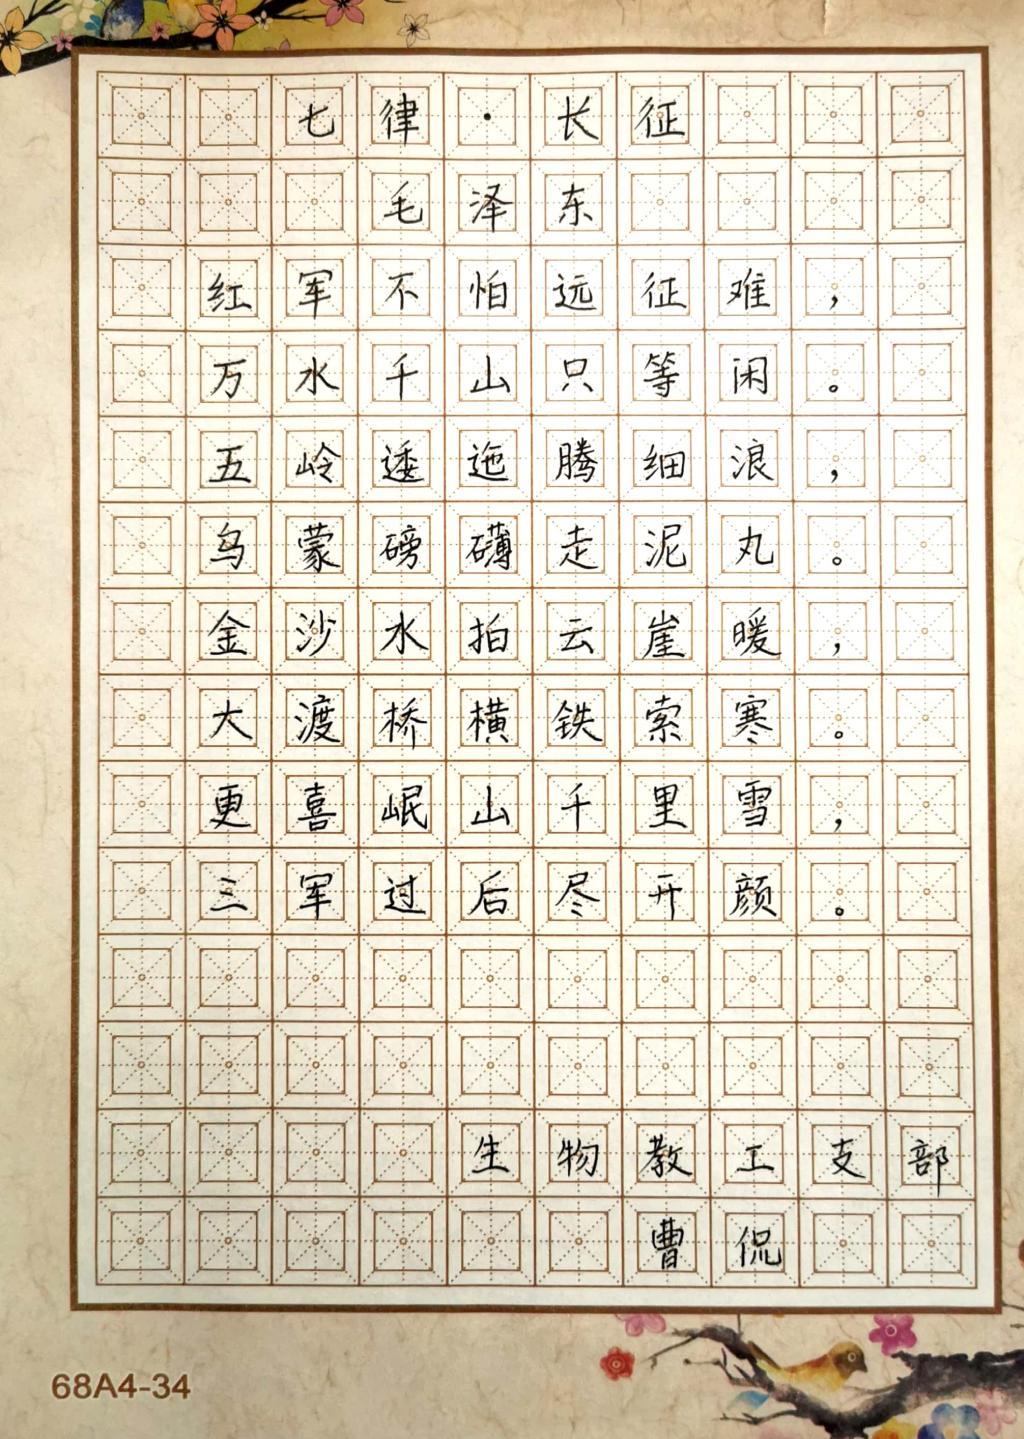 七律·长征
毛泽东
红军不怕远征难，
万水千山只等闲。
五岭逶迤腾细浪，
乌蒙磅礴走泥丸。
金沙水拍云崖暖，
大渡桥横铁索寒。
更喜岷山千里雪，
三军过后尽开颜。
生物教工支部
曹侃
68A4-34